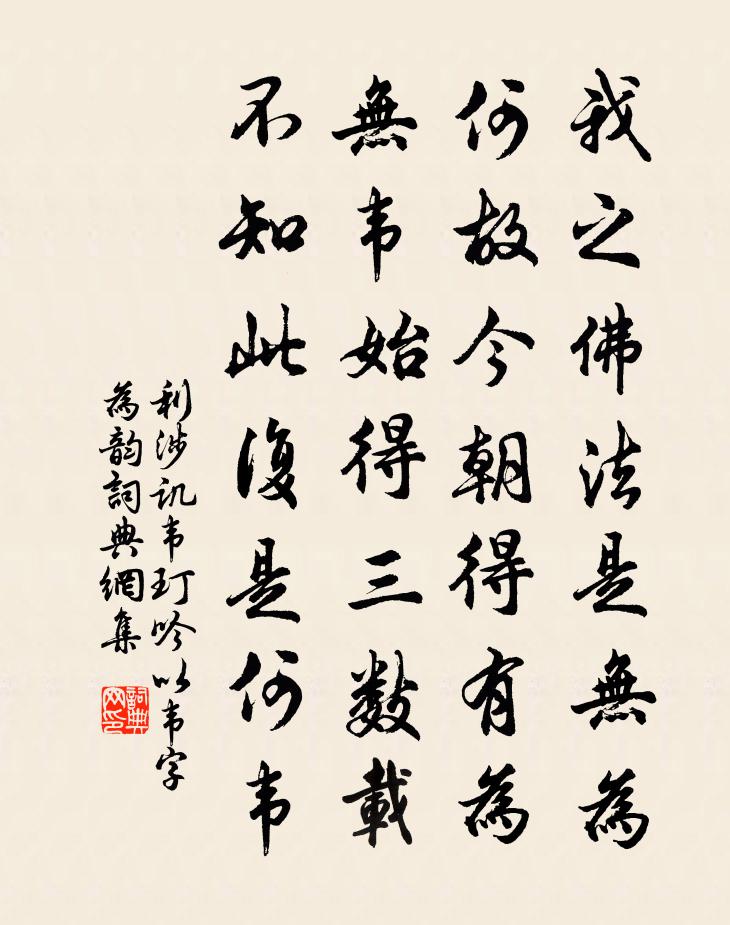 我之佛法是無為
何故今朝得有為
無韦始得三數載
不知此復是何韦
利涉詶韦玎吟以韦字
為韵詞典網集
詞典網印